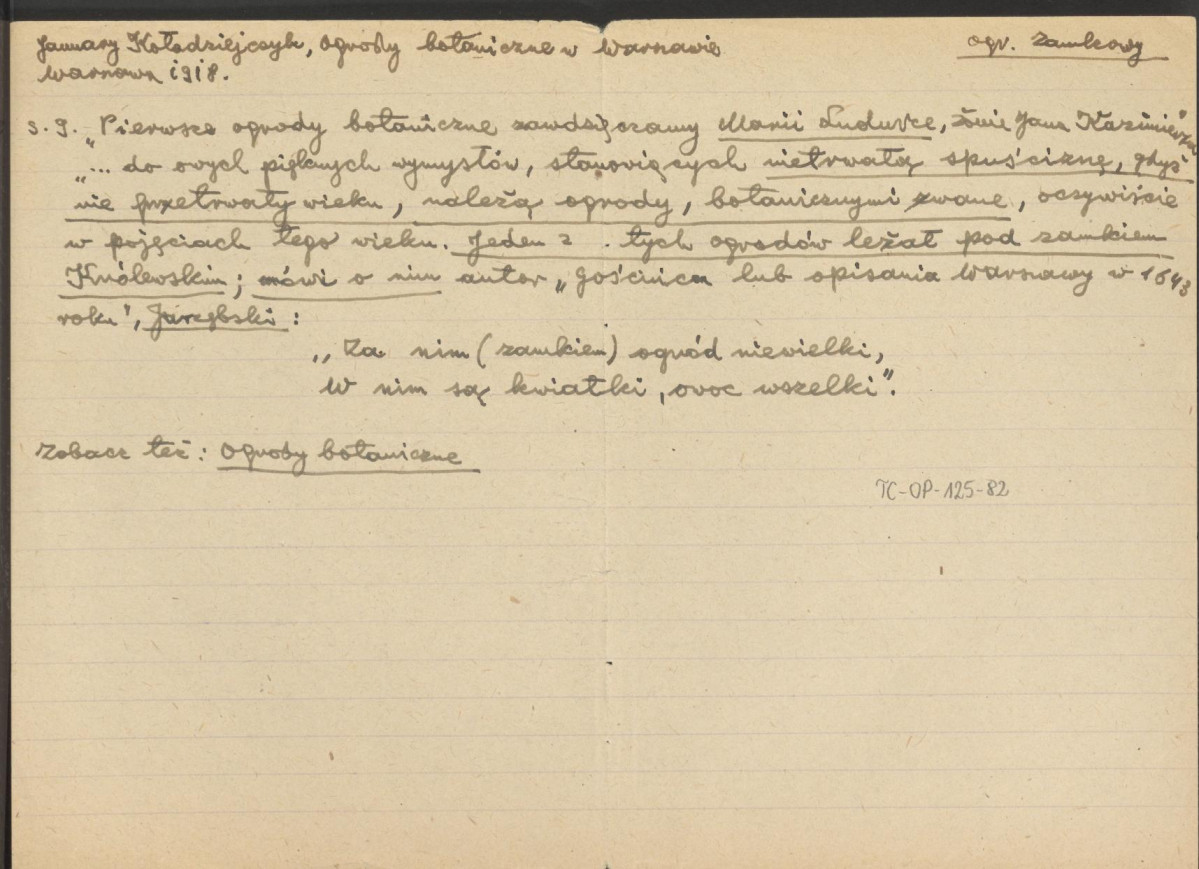 January Kołodziejczyk, Ogrody botaniczne w Warszawie
ogr. Zamkowy
Warszawa 1918.
s. 9. „Pierwsze ogrody botaniczne zawdzięczamy Marii Ludwice, żonie Jana Kazimierza"
„... do owych pięknych wymysłów, stanowiących nietrwałą spuściznę, gdyż
nie przetrwały wieku, należą ogrody, botanicznymi zwane, oczywiście
w pojęciach tego wieku. Jeden z tych ogrodów leżał pod zamkiem
Królewskim; mówi o nim autor „Gościńca lub opisania Warszawy w 1643
roku", Jarzębski:
„Za nim (zamkiem) ogród niewielki,
W nim są kwiatki, owoc wszelki".
Zobacz też: Ogrody botaniczne
TC-OP-125-82